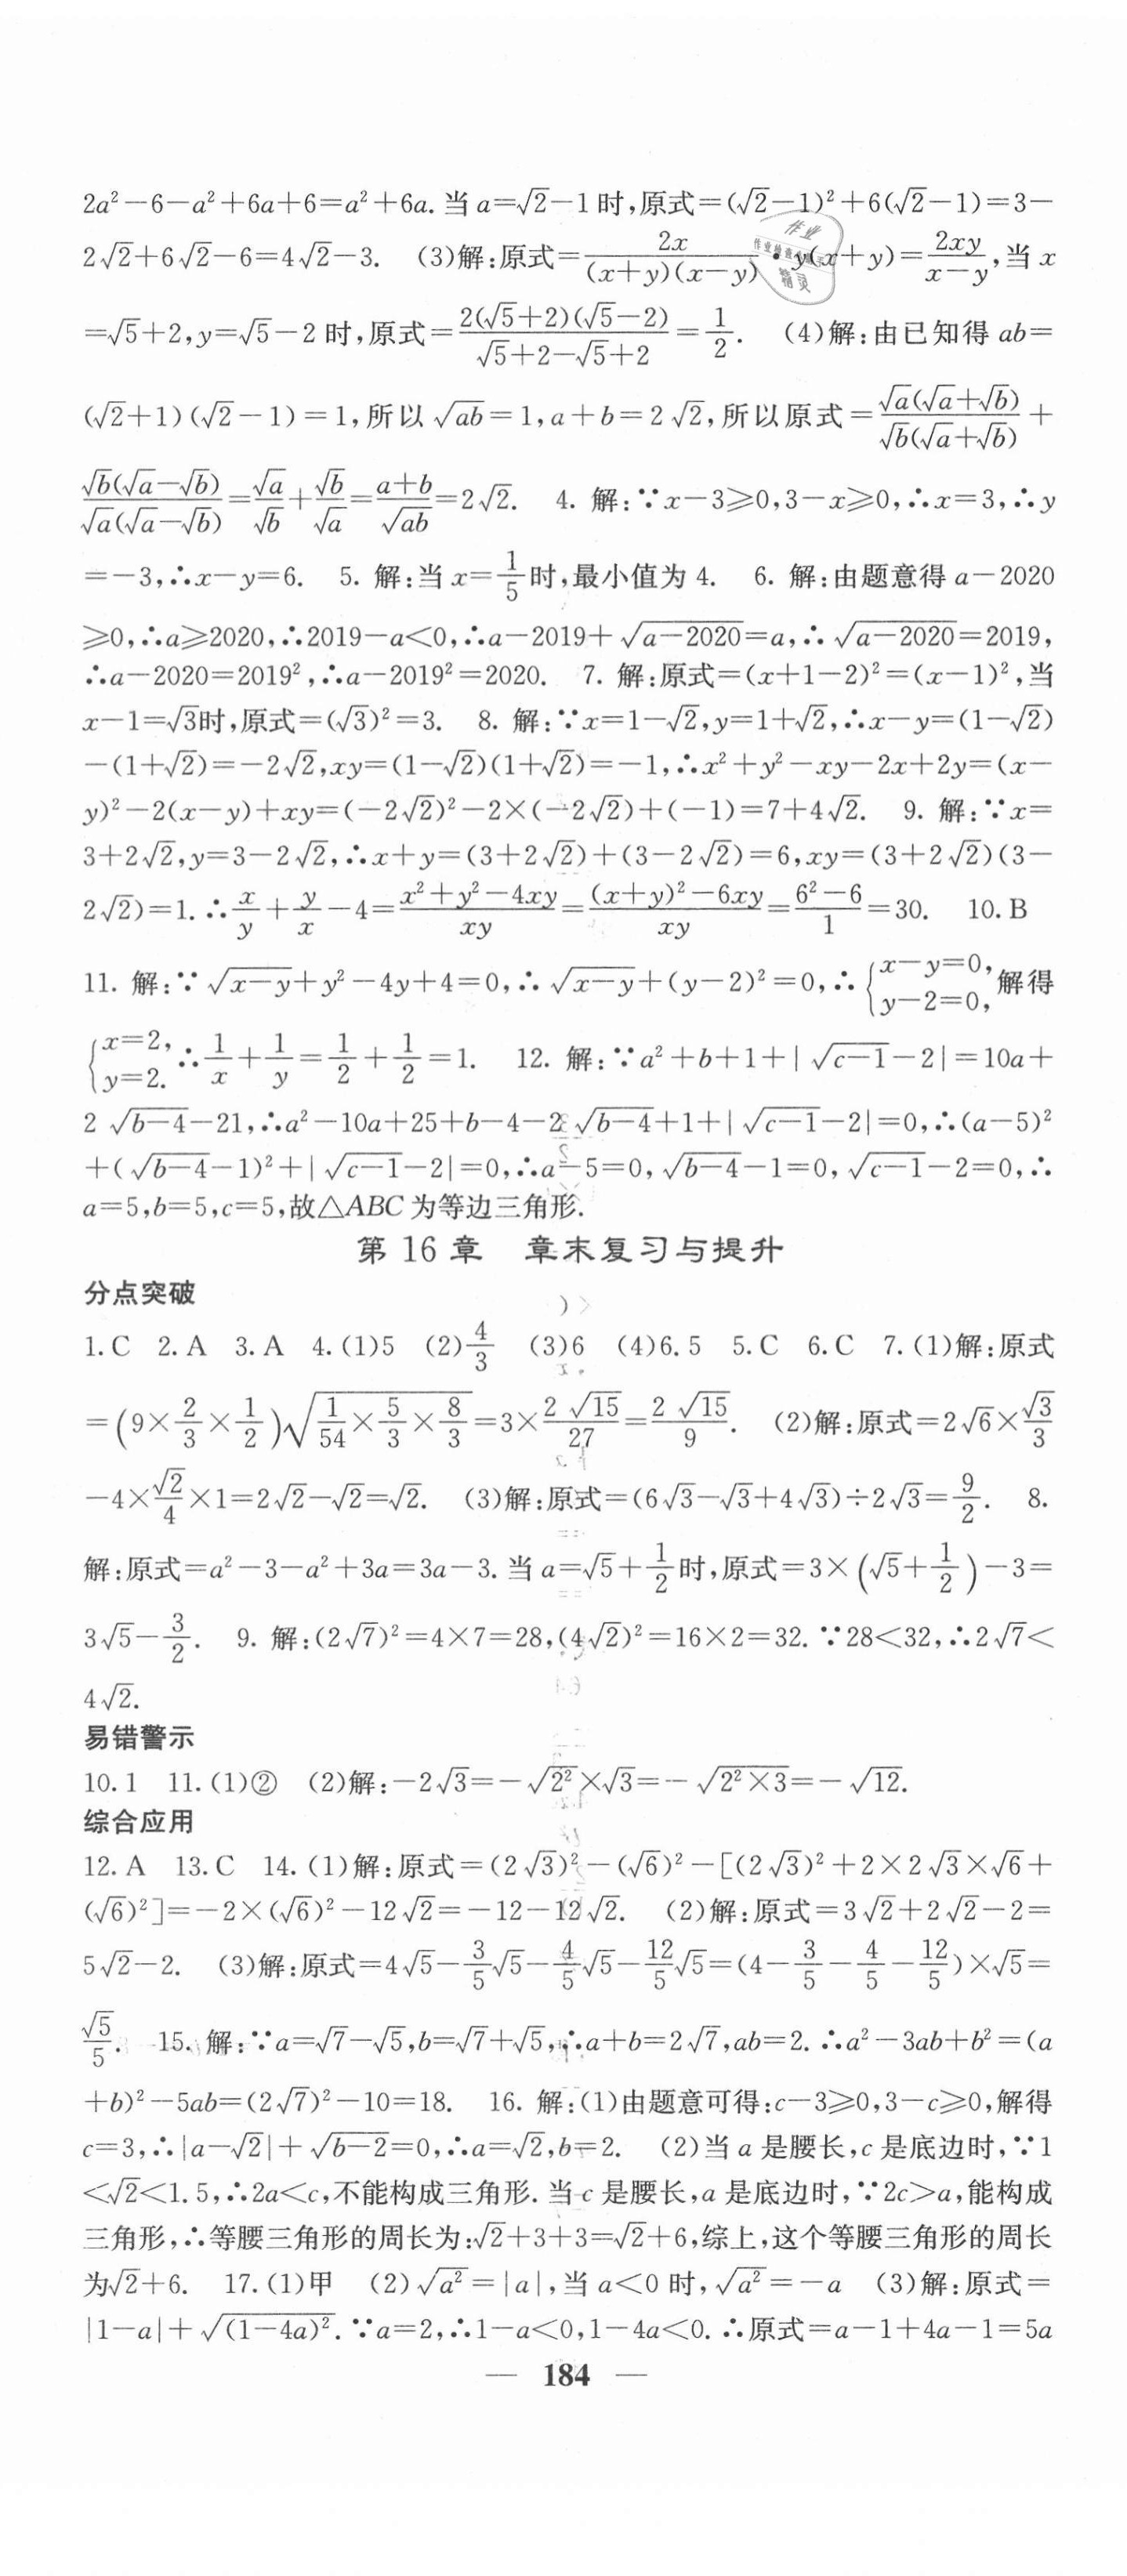 2a²-6-a²+6a+6=a²+6a. 当 a=√2-1 时,原式=(√2-1)²+6(√2-1)=3-
2√2+6√2-6=4√2-3. (3)解:原式=2x/((x+y)(x-y))·y(x+y)=2xy/(x-y),当 x
=√5+2,y=√5-2 时,原式=2(√5+2)(√5-2)/(√5+2-√5+2)=1/2. (4)解:由已知得 ab=
(√2+1)(√2-1)=1,所以 √(ab)=1,a+b=2√2,所以原式=√a(√a+√b)/(√b(√a+√b))+
√b(√a-√b)/(√a(√a-√b))=√a/√b+√b/√a=(a+b)/√(ab)=2√2. 4. 解:∵x-3≥0,3-x≥0,∴x=3,∴y
=-3,∴x-y=6. 5. 解:当 x=1/5时,最小值为 4. 6. 解:由题意得 a-2020
≥0,∴a≥2020,∴2019-a<0,∴a-2019+√(a-2020)=a,∴√(a-2020)=2019,
∴a-2020=2019²,∴a-2019²=2020. 7. 解:原式=(x+1-2)²=(x-1)²,当
x-1=√3时,原式=(√3)²=3. 8. 解:∵x=1-√2,y=1+√2,∴x-y=(1-√2)
-(1+√2)=-2√2,xy=(1-√2)(1+√2)=-1,∴x²+y²-xy-2x+2y=(x-
y)²-2(x-y)+xy=(-2√2)²-2×(-2√2)+(-1)=7+4√2. 9. 解:∵x=
3+2√2,y=3-2√2,∴x+y=(3+2√2)+(3-2√2)=6,xy=(3+2√2)(3-
2√2)=1. ∴x/y+y/x-4=(x²+y²-4xy)/xy=((x+y)²-6xy)/xy=(6²-6)/1=30. 10. B
11. 解:∵√(x-y)+y²-4y+4=0,∴√(x-y)+(y-2)²=0,∴{x-y=0, y-2=0,解得
{x=2, y=2. ∴1/x+1/y=1/2+1/2=1. 12. 解:∵a²+b+1+|√(c-1)-2|=10a+
2√(b-4)-21,∴a²-10a+25+b-4-2√(b-4)+1+|√(c-1)-2|=0,∴(a-5)²
+(√(b-4)-1)²+|√(c-1)-2|=0,∴a-5=0,√(b-4)-1=0,√(c-1)-2=0,∴
a=5,b=5,c=5,故△ABC 为等边三角形.
第 16 章 章末复习与提升
分点突破
1. C 2. A 3. A 4. (1)5 (2)4/3 (3)6 (4)6.5 5. C 6. C 7. (1)解:原式
=(9×2/3×1/2)√(1/54×5/3×8/3)=3×2√15/27=2√15/9. (2)解:原式=2√6×√3/3
-4×√2/4×1=2√2-√2=√2. (3)解:原式=(6√3-√3+4√3)÷2√3=9/2. 8.
解:原式=a²-3-a²+3a=3a-3. 当 a=√5+1/2时,原式=3×(√5+1/2)-3=
3√5-3/2. 9. 解:(2√7)²=4×7=28,(4√2)²=16×2=32. ∵28<32,∴2√7<
4√2.
易错警示
10. 1 11. (1)② (2)解:-2√3=-√(2²)×√3=-√(2²×3)=-√12.
综合应用
12. A 13. C 14. (1)解:原式=(2√3)²-(√6)²-[(2√3)²+2×2√3×√6+
(√6)²]=-2×(√6)²-12√2=-12-12√2. (2)解:原式=3√2+2√2-2=
5√2-2. (3)解:原式=4√5-3/5√5-4/5√5-12/5√5=(4-3/5-4/5-12/5)×√5=
√5/5. 15. 解:∵a=√7-√5,b=√7+√5,∴a+b=2√7,ab=2. ∴a²-3ab+b²=(a
+b)²-5ab=(2√7)²-10=18. 16. 解:(1)由题意可得:c-3≥0,3-c≥0,解得
c=3,∴|a-√2|+√(b-2)=0,∴a=√2,b=2. (2)当 a 是腰长,c 是底边时,∵1
<√2<1.5,∴2a<c,不能构成三角形. 当 c 是腰长,a 是底边时,∵2c>a,能构成
三角形,∴等腰三角形的周长为:√2+3+3=√2+6,综上,这个等腰三角形的周长
为√2+6. 17. (1)甲 (2)√(a²)=|a|,当 a<0 时,√(a²)=-a (3)解:原式=
|1-a|+√((1-4a)²). ∵a=2,∴1-a<0,1-4a<0. ∴原式=a-1+4a-1=5a
— 184 —